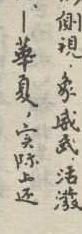 側視，象威武、活潑
—華夏，实际上还